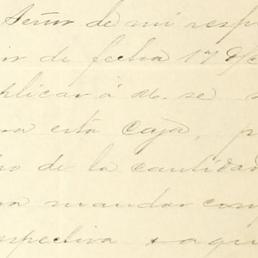 Señor de mi resp
or de fecha 17 de
plicar á U. se s
na esta Caja, p
o de la cantidad
ra mandar comp
spectiva saqu